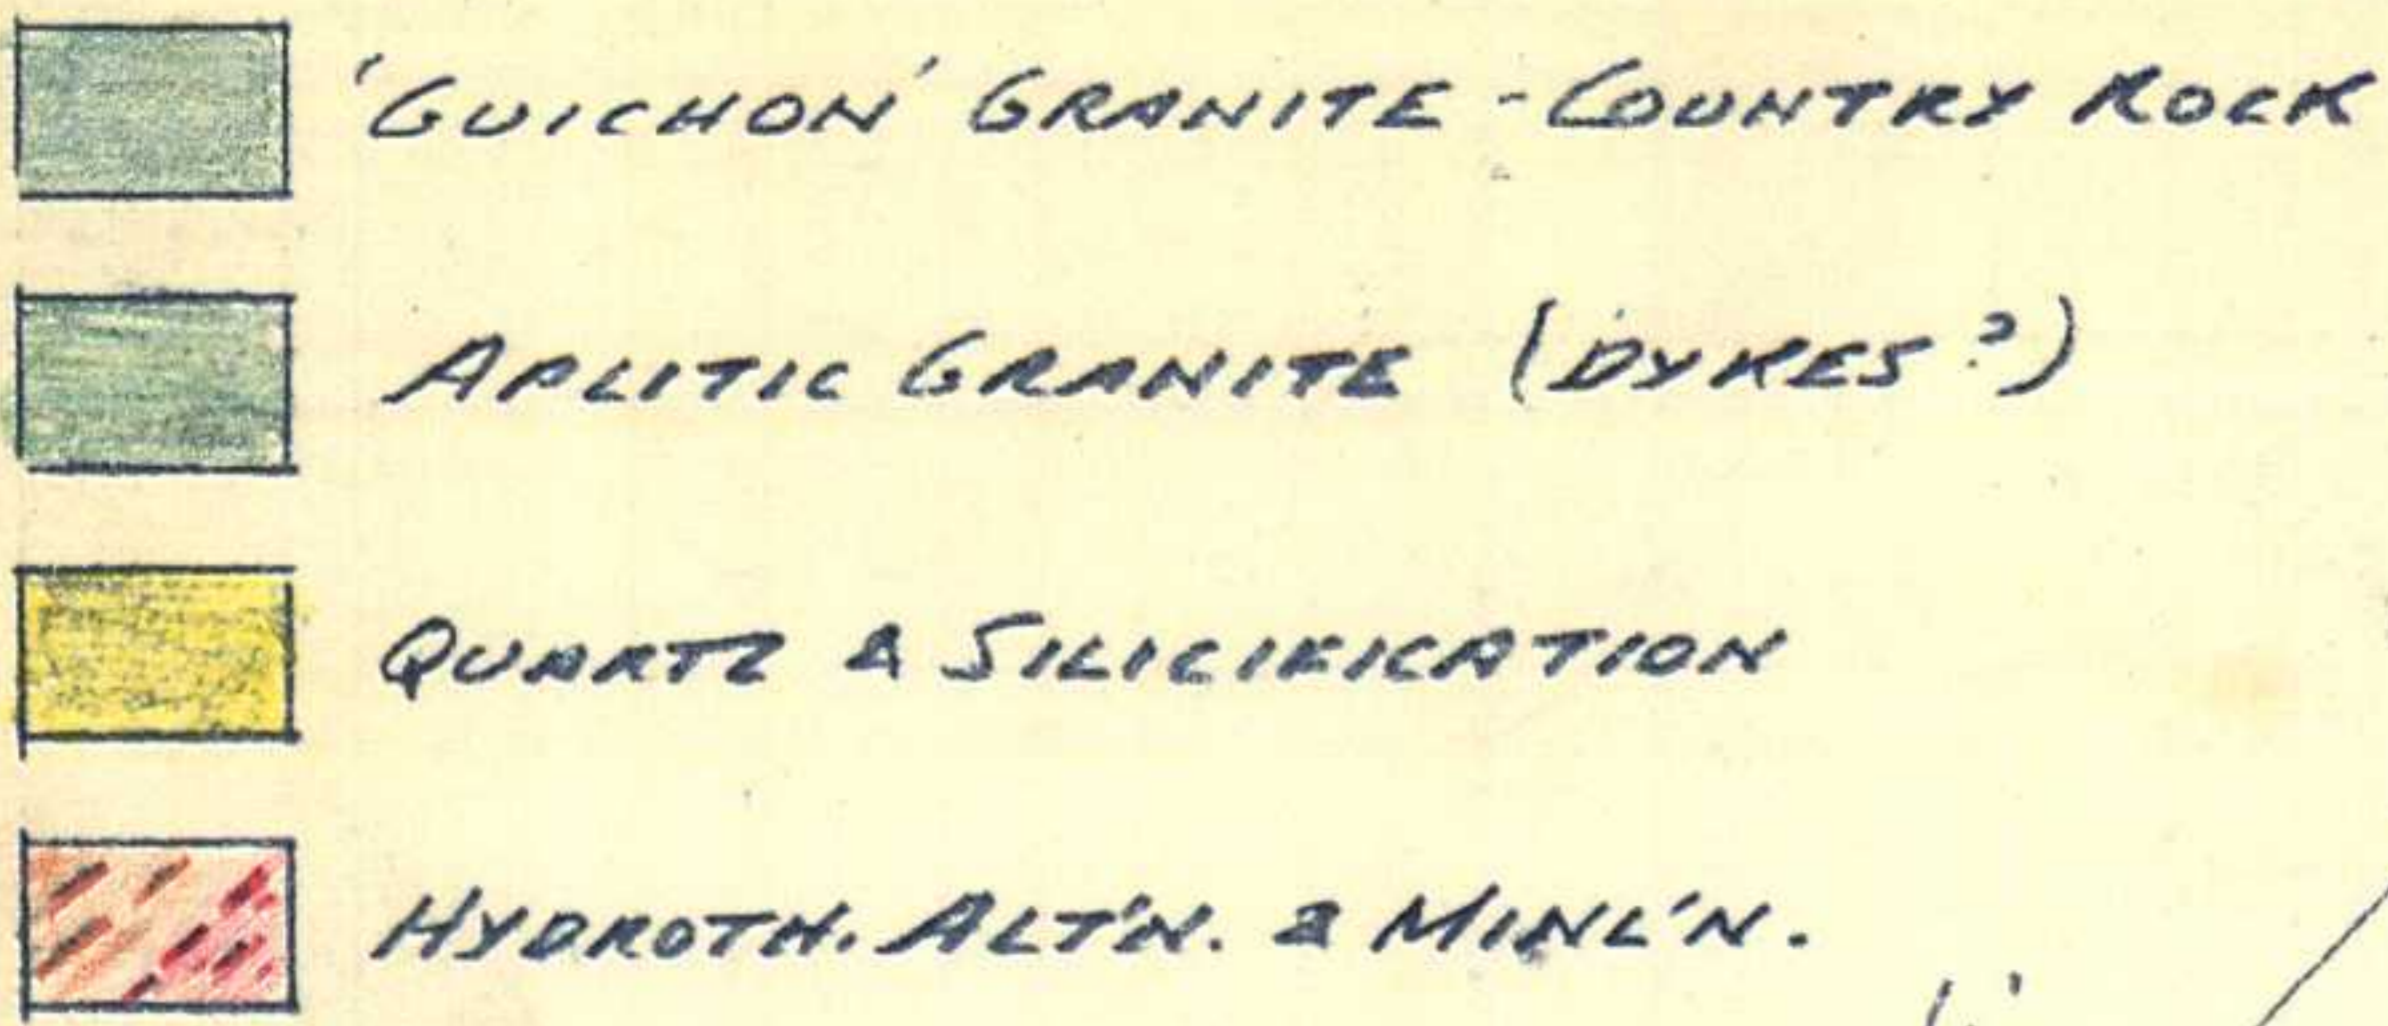 'GUICHON' GRANITE - COUNTRY ROCK
APLITIC GRANITE (DYKES?)
QUARTZ & SILICIFICATION
HYDROTH. ALT'N. & MINL'N.